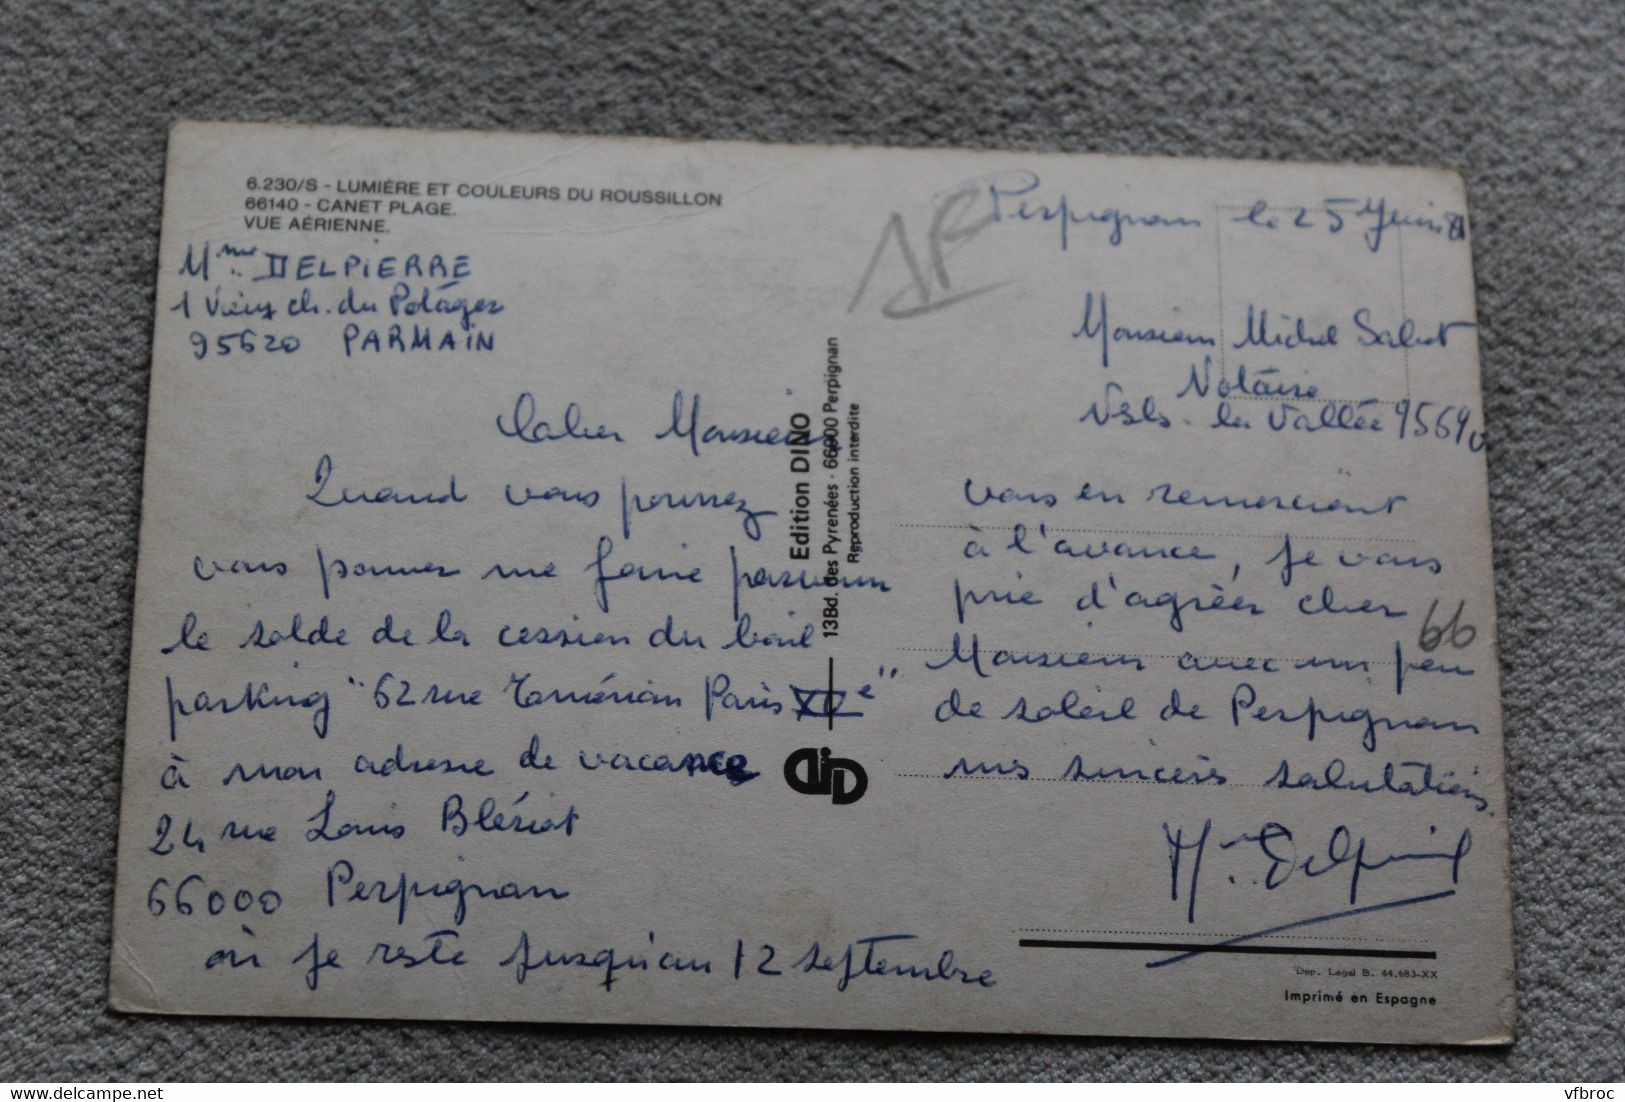 6.230/S - LUMIÈRE ET COULEURS DU ROUSSILLON
66140 - CANET PLAGE.
VUE AÉRIENNE.
Mme DELPIERRE
1 Vieux ch. du Potager
95620 PARMAIN
Cher Monsieur
Quand vous pourrez
vous pouvez me faire parvenir
le solde de la cession du bail
parking "62 rue Paris XVe"
à mon adresse de vacances
24 rue Louis Blériot
66000 Perpignan
où je reste jusqu'au 12 septembre
Edition DINO
13Bd. des Pyrenées - 66000 Perpignan
Reproduction interdite
Perpignan le 25 Juin 81
Monsieur Michel
Notaire
la Vallée 95690
vous en remerciant
à l'avance, je vous
prie d'agréer cher
Monsieur avec un peu
de soleil de Perpignan
mes sincères salutations.
Mme Delpierre
66
Dep. Legal B. 44.683-XX
Imprimé en Espagne
vfbroc